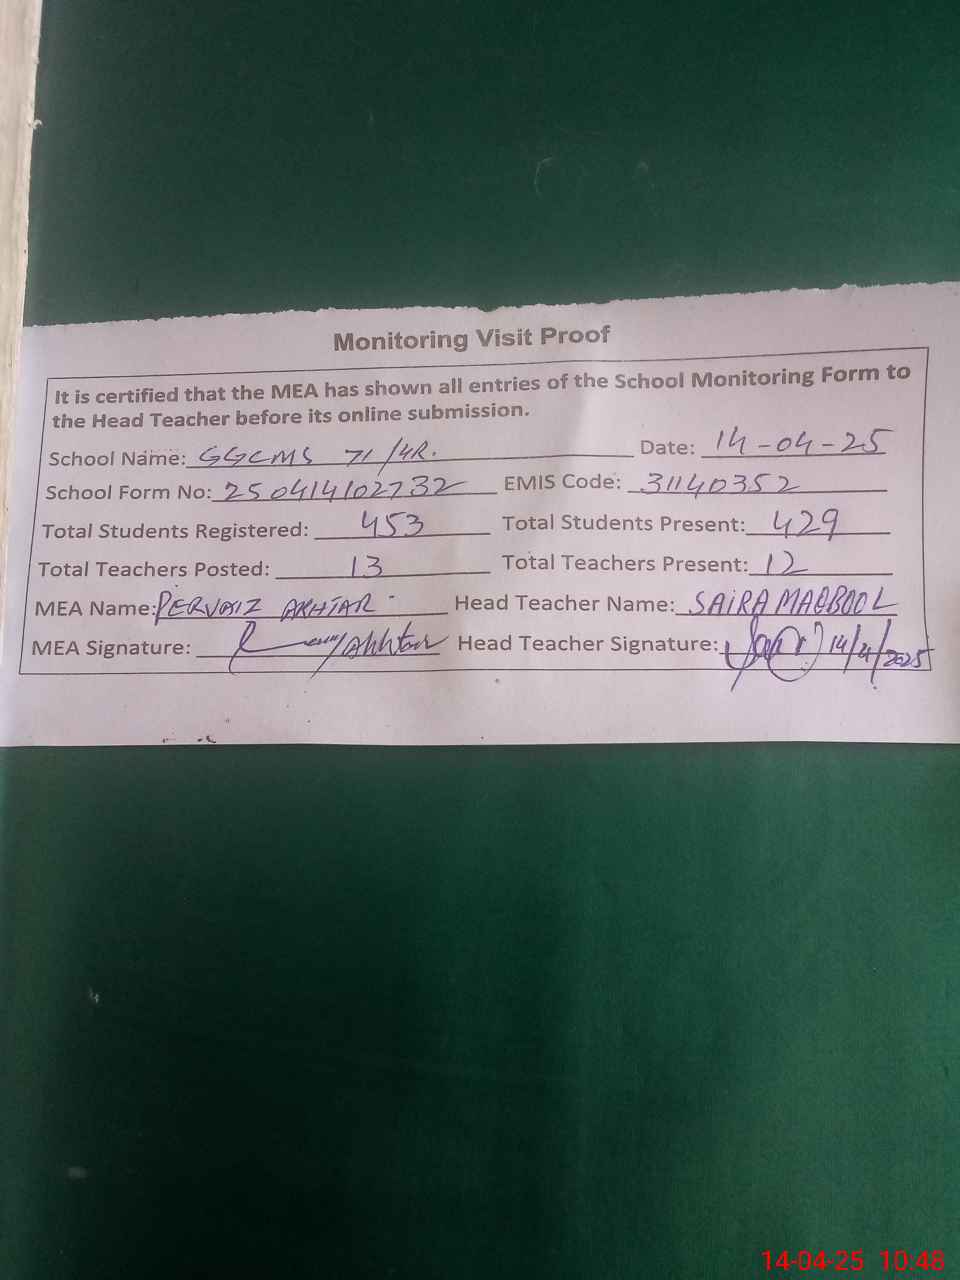 Monitoring Visit Proof
It is certified that the MEA has shown all entries of the School Monitoring Form to
the Head Teacher before its online submission.
School Name: GGCMS 71/4R. Date: 14-04-25
School Form No: 250414102732 EMIS Code: 31140352
Total Students Registered: 453 Total Students Present: 429
Total Teachers Posted: 13 Total Teachers Present: 12
MEA Name: PERVAIZ AKHTAR Head Teacher Name: SAIRA MAQBOOL
MEA Signature: Akhtar Head Teacher Signature: 14/4/2025
14-04-25 10:48